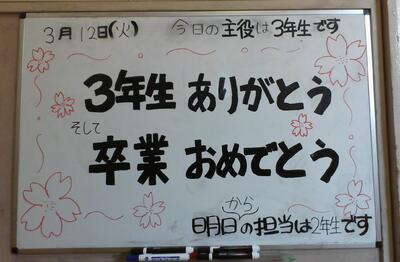 3月12日(火) 今日の主役は3年生です
3年生 ありがとう
そして
卒業 おめでとう
から
明日の担当は2年生です